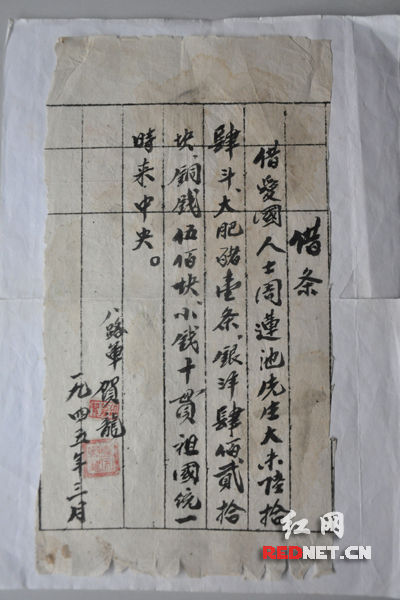 借条
借愛國人士周蓮池先生大米陸拾
肆斗、大肥豬壹条、銀洋肆佰貳拾
块、銅钱伍佰块、小钱十贯、祖國統一
時来中央。
八路軍 贺龍
一九四五年三月
红网
REDNET.CN